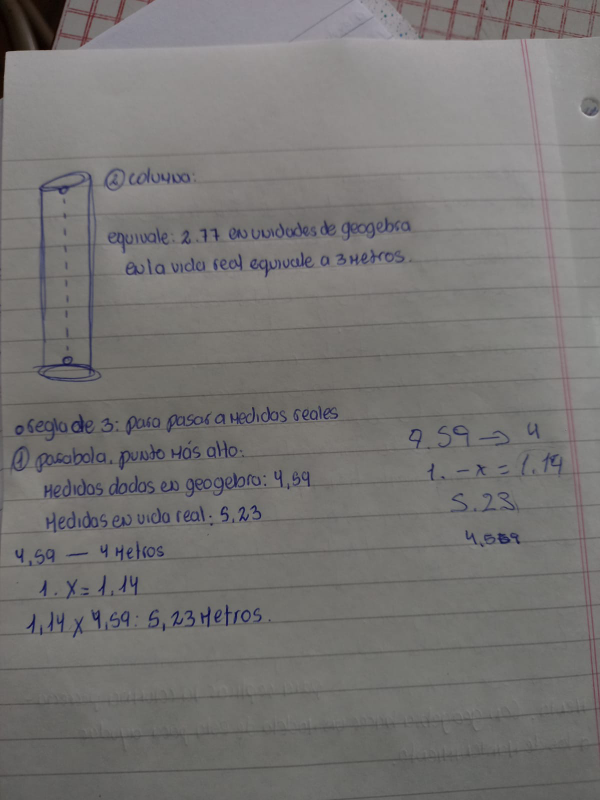 ② columna:
equivale: 2.77 en unidades de geogebra
en la vida real equivale a 3 metros.
regla de 3: para pasar a medidas reales
① parabola. punto más alto:
medidas dadas en geogebra: 4,59
medidas en vida real: 5,23
4,59 — 4 metros
1. x = 1,14
1,14 x 4,59: 5,23 metros.
4.59 → 4
1. - x = 1.14
5.23